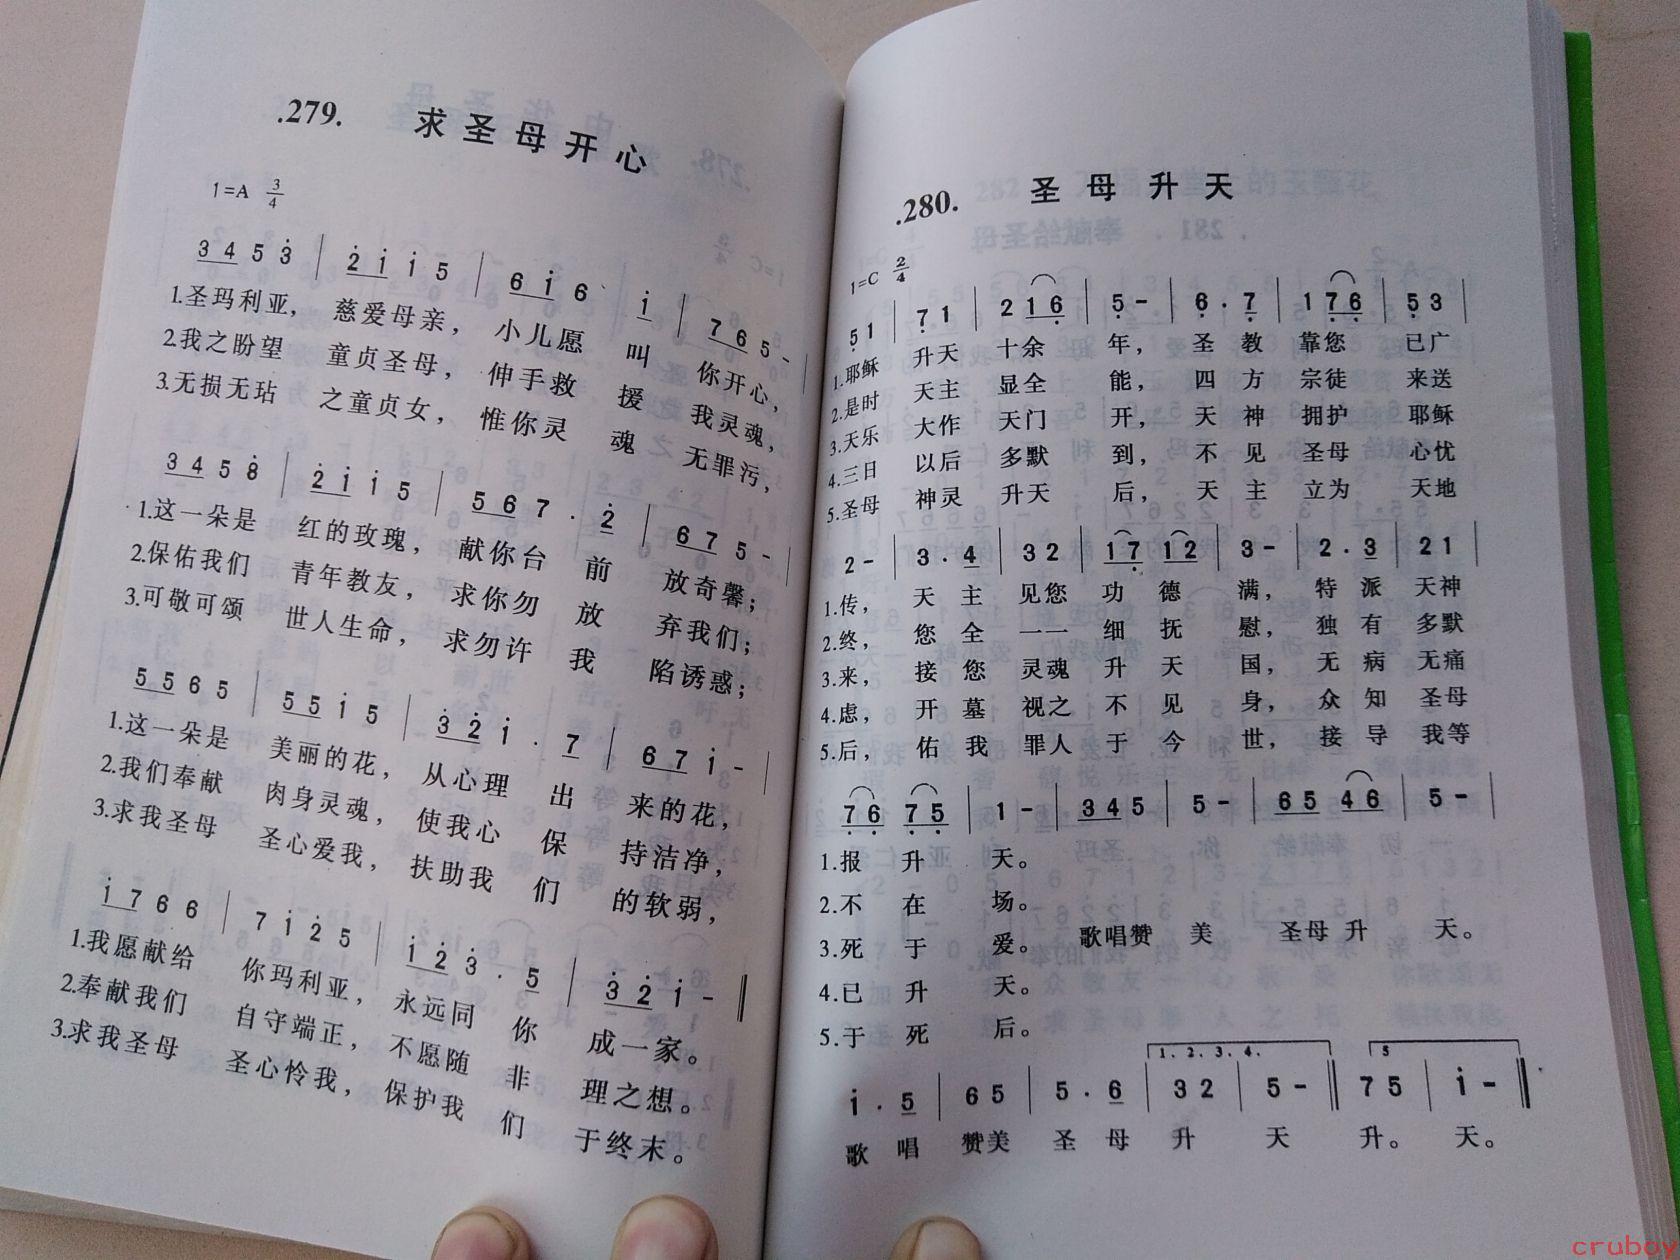 .279. 求圣母开心
1=A 3/4
3 4 5 3̇ | 2̇ 1̇ 1̇ 5 | 6 1̇ 6 1̇ | 7 6 5 - |
1.圣玛利亚, 慈爱母亲, 小儿愿 叫 你开心,
2.我之盼望 童贞圣母, 伸手救 援 我灵魂,
3.无损无玷 之童贞女, 惟你灵 魂 无罪污,
3 4 5 8̇ | 2̇ 1̇ 1̇ 5 | 5 6 7 . 2̇ | 6 7 5 - |
1.这一朵是 红的玫瑰, 献你台 前 放奇馨;
2.保佑我们 青年教友, 求你勿 放 弃我们;
3.可敬可颂 世人生命, 求勿许 我 陷诱惑;
5 5 6 5 | 5 5 1̇ 5 | 3̇ 2̇ 1̇ . 7 | 6 7 1̇ - |
1.这一朵是 美丽的花, 从心理 出 来的花,
2.我们奉献 肉身灵魂, 使我心 保 持洁净,
3.求我圣母 圣心爱我, 扶助我 们 的软弱,
1̇ 7 6 6 | 7 1̇ 2̇ 5 | 1̇ 2̇ 3̇ . 5 | 3̇ 2̇ 1̇ - ‖
1.我愿献给 你玛利亚, 永远同 你 成一家。
2.奉献我们 自守端正, 不愿随 非 理之想。
3.求我圣母 圣心怜我, 保护我 们 于终末。
.280. 圣母升天
1=C 2/4
5̣ 1 | 7̣ 1 | 2 1 6̣ | 5̣ - | 6̣ . 7̣ | 1 7̣ 6̣ | 5̣ 3 |
1.耶稣 升天 十余 年, 圣 教 靠您 已广
2.是时 天主 显全 能, 四 方 宗徒 来送
3.天乐 大作 天门 开, 天 神 拥护 耶稣
4.三日 以后 多默 到, 不 见 圣母 心忧
5.圣母 神灵 升天 后, 天 主 立为 天地
2 - | 3 . 4 | 3 2 | 1 7̣ 1 2 | 3 - | 2 . 3 | 2 1 |
1.传, 天 主 见您 功 德 满, 特 派 天神
2.终, 您 全 一一 细 抚 慰, 独 有 多默
3.来, 接 您 灵魂 升 天 国, 无 病 无痛
4.虑, 开 墓 视之 不 见 身, 众 知 圣母
5.后, 佑 我 罪人 于 今 世, 接 导 我等
7̣ 6̣ 7̣ 5̣ | 1 - | 3 4 5 | 5 - | 6 5 4 6 | 5 - |
1.报 升 天。
2.不 在 场。
3.死 于 爱。 歌唱赞 美 圣母 升 天。
4.已 升 天。
5.于 死 后。
1. 2. 3. 4. 5
1̇ . 5 | 6 5 | 5 . 6 | 3 2 | 5 - ‖ 7 5 | 1̇ - ‖
歌 唱 赞美 圣 母 升 天 升。 天。
cruboy